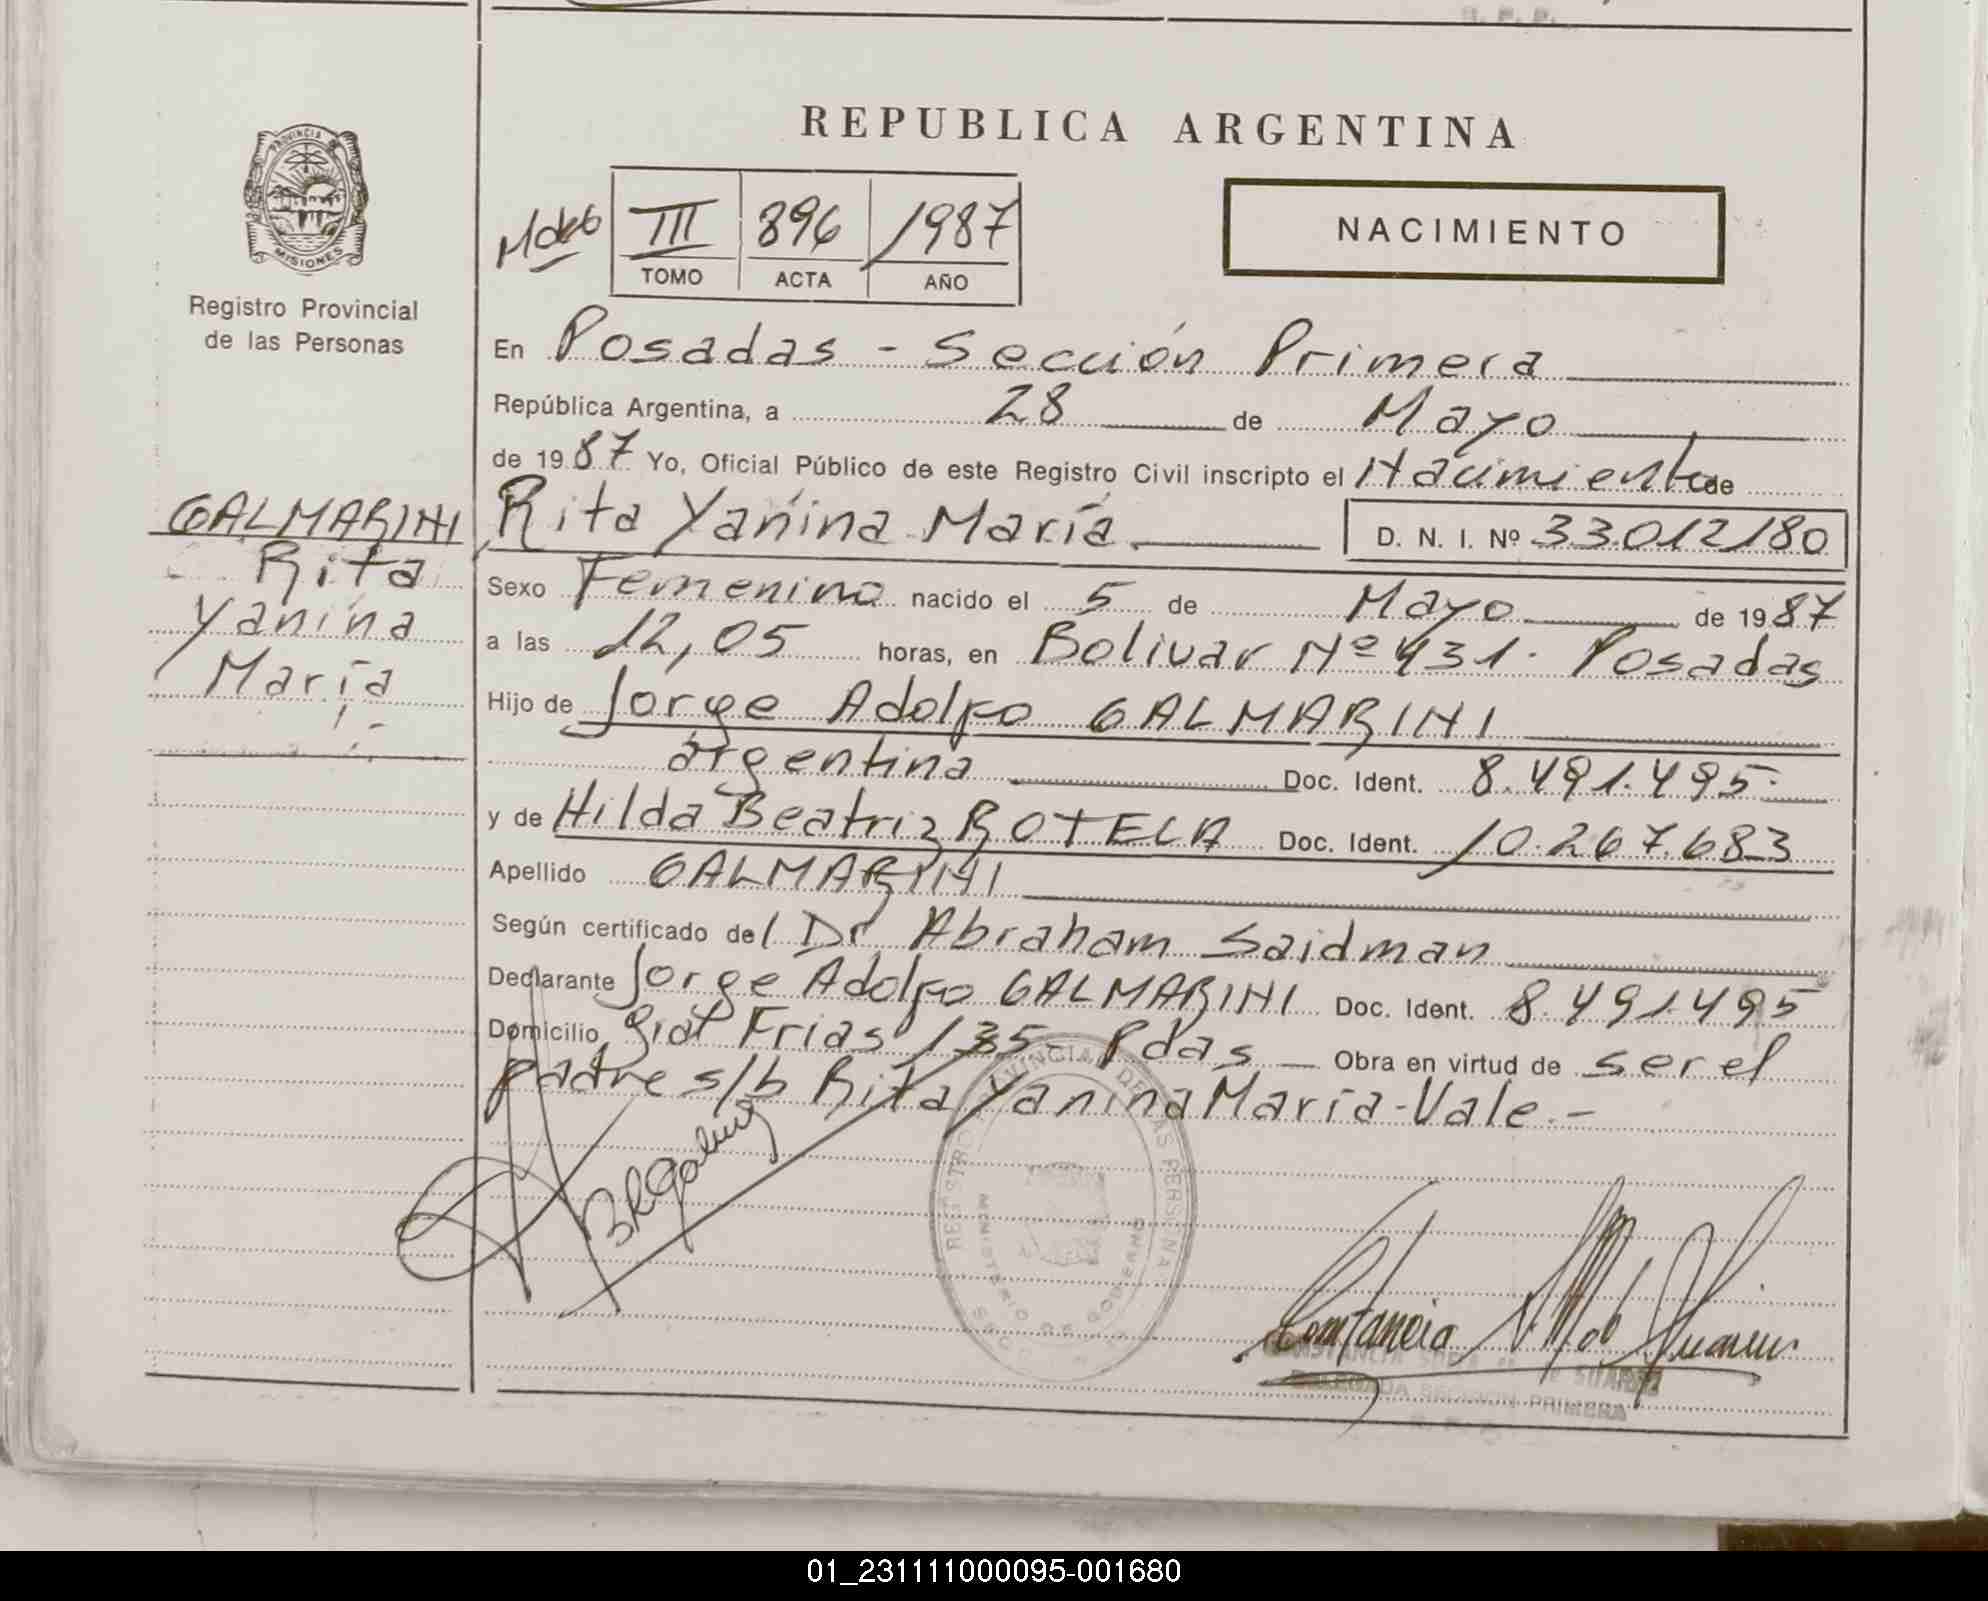 REPUBLICA ARGENTINA
PROVINCIA DE MISIONES
Registro Provincial
de las Personas
III 896 1987
TOMO ACTA AÑO
NACIMIENTO
En Posadas - Sección Primera
República Argentina, a 28 de Mayo
de 1987 Yo, Oficial Público de este Registro Civil inscripto el Nacimiento de
GALMARINI
Rita
Yanina
María
Rita Yanina María D. N. I. Nº 33.012.180
Sexo Femenino nacido el 5 de Mayo de 1987
a las 12,05 horas, en Bolivar Nº 431. Posadas
Hijo de Jorge Adolfo GALMARINI
argentina Doc. Ident. 8.491.495.
y de Hilda Beatriz ROTELA Doc. Ident. 10.267.683
Apellido GALMARINI
Según certificado del Dr Abraham Saidman
Declarante Jorge Adolfo GALMARINI Doc. Ident. 8.491.495
Domicilio Gral Frias 135 - Pdas - Obra en virtud de ser el
padre s/b Rita Yanina María - Vale. -
REGISTRO PROVINCIAL DE LAS PERSONAS
MINISTERIO DE GOBIERNO
DELEGADA SECCION PRIMERA
01_231111000095-001680